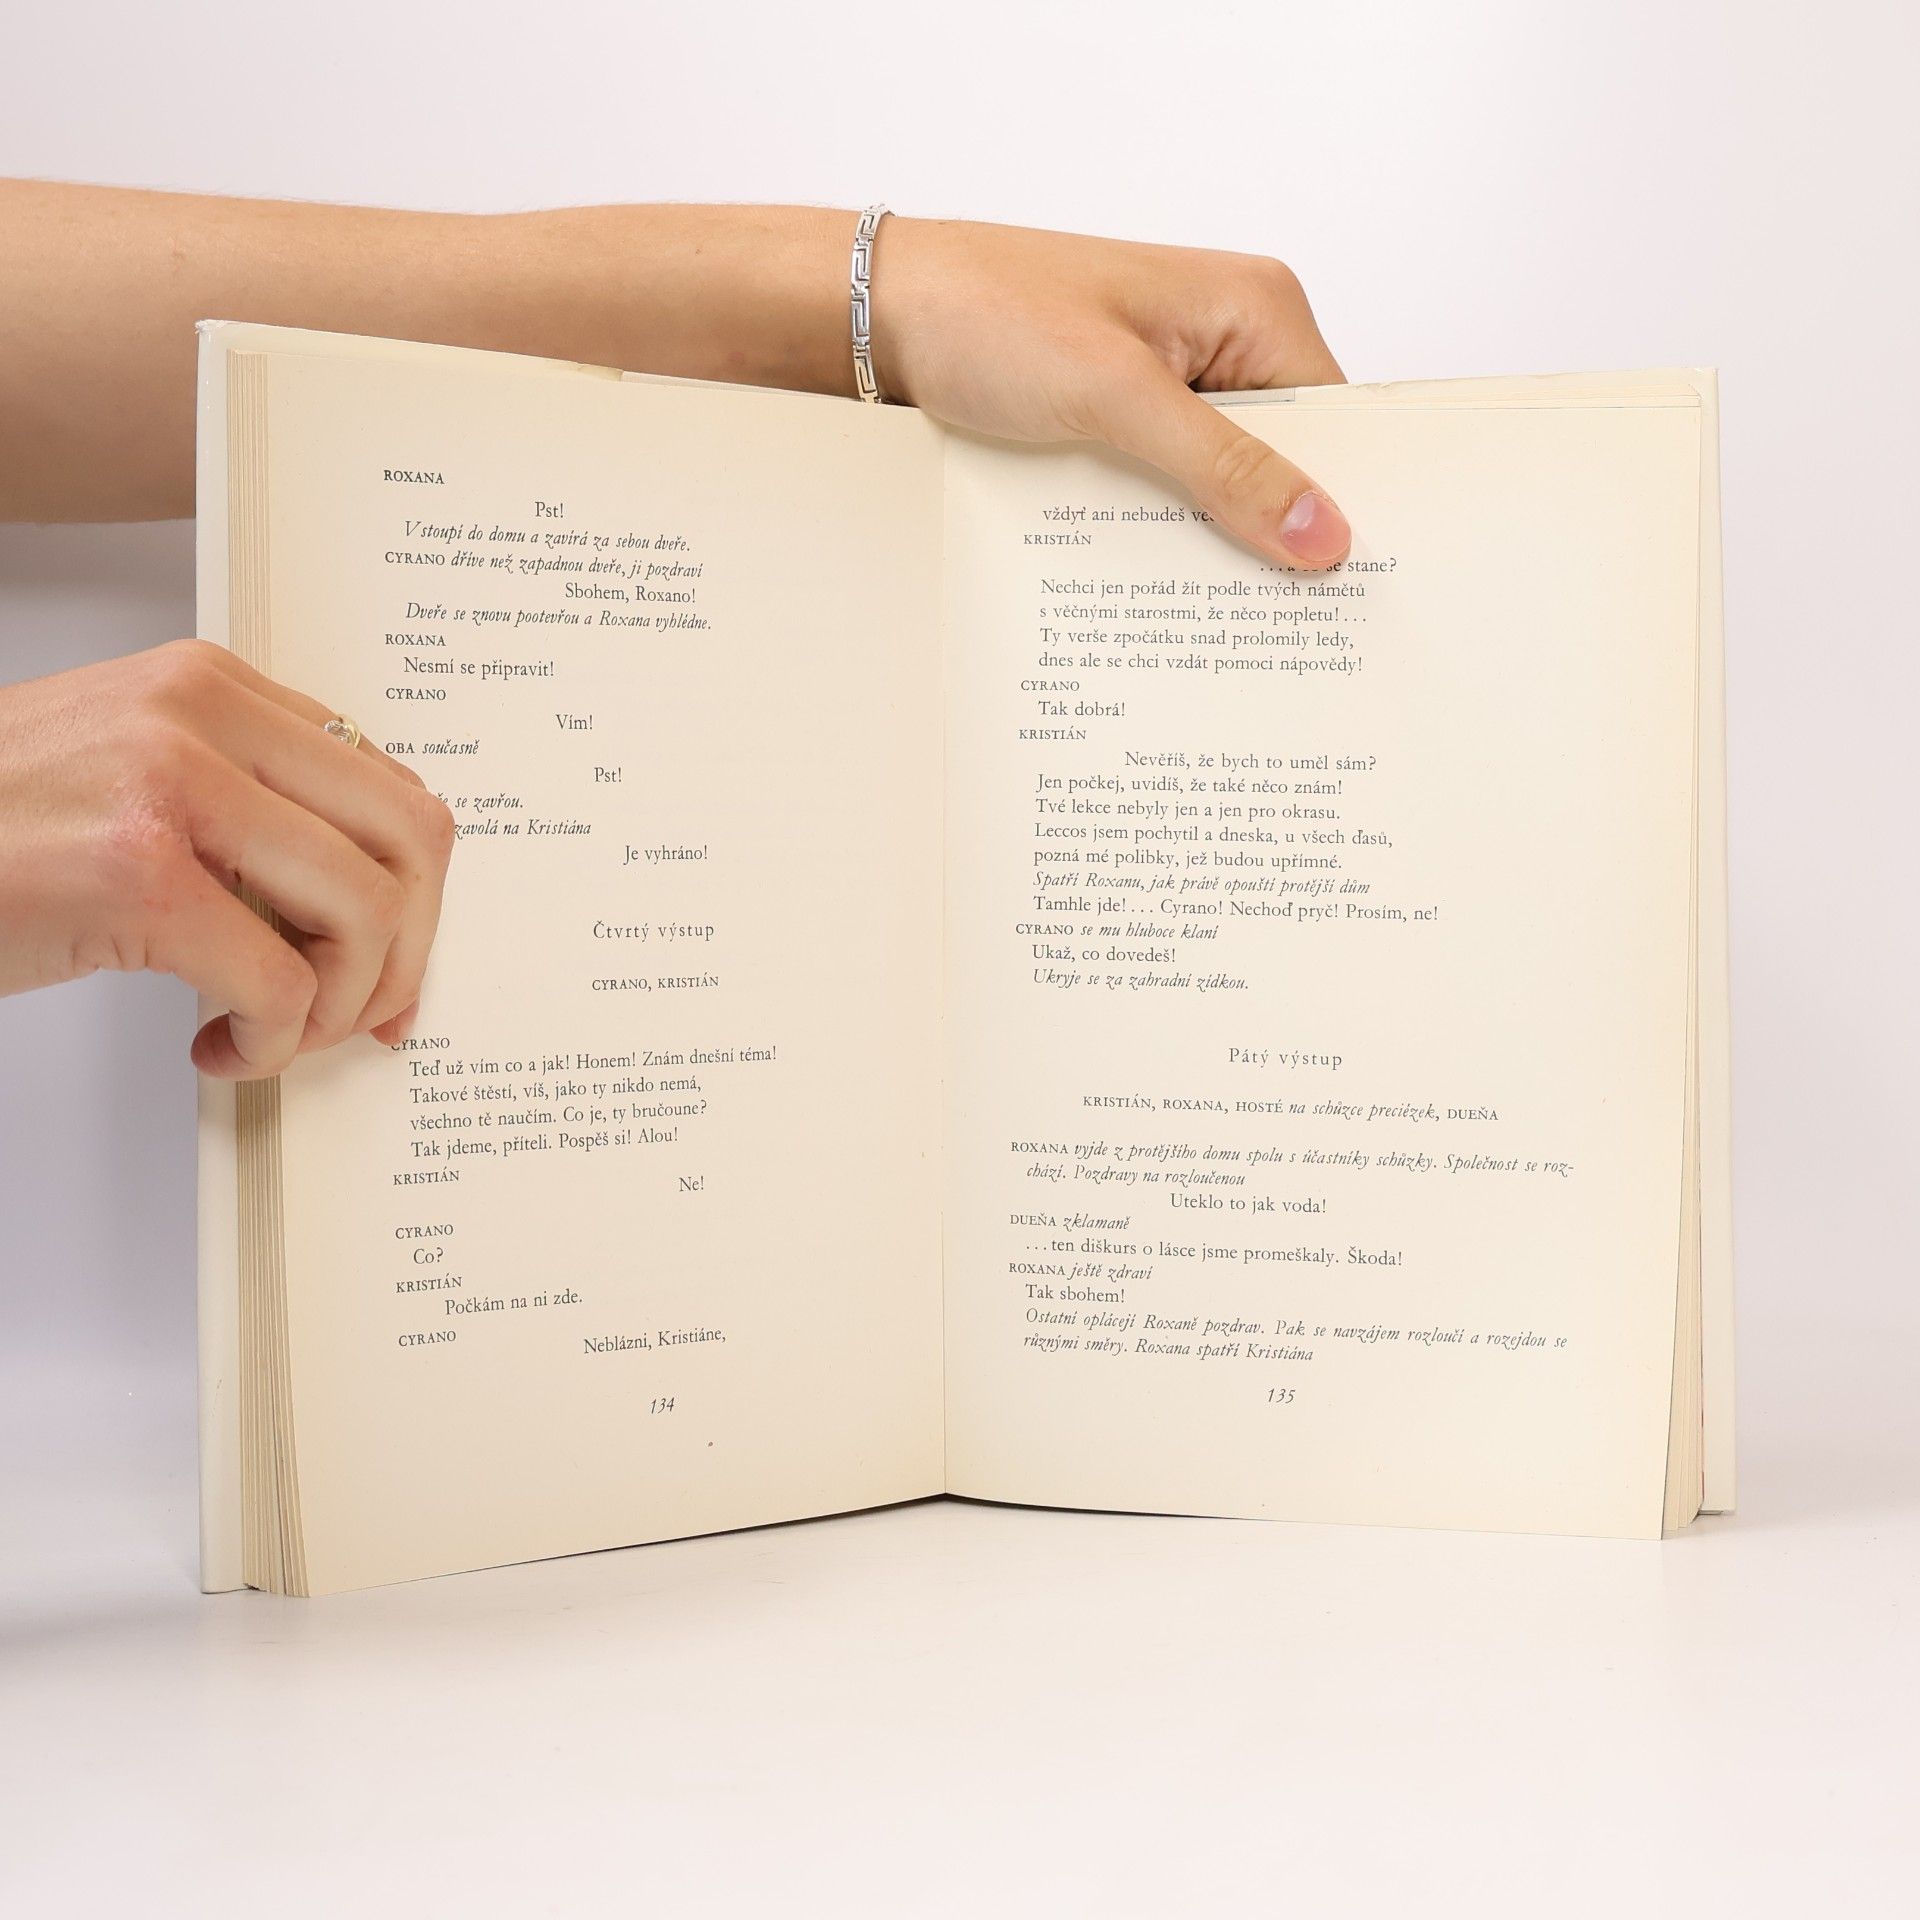 ROXANA
Pst!
Vstoupí do domu a zavírá za sebou dveře.
CYRANO dříve než zapadnou dveře, ji pozdraví
Sbohem, Roxano!
Dveře se znovu pootevřou a Roxana vyhlédne.
ROXANA
Nesmí se připravit!
CYRANO
Vím!
OBA současně
Pst!
se zavřou.
zavolá na Kristiána
Je vyhráno!
Čtvrtý výstup
CYRANO, KRISTIÁN
CYRANO
Teď už vím co a jak! Honem! Znám dnešní téma!
Takové štěstí, víš, jako ty nikdo nemá,
všechno tě naučím. Co je, ty bručoune?
Tak jdeme, příteli. Pospěš si! Alou!
KRISTIÁN
Ne!
CYRANO
Co?
KRISTIÁN
Počkám na ni zde.
CYRANO
Neblázni, Kristiáne,
134
vždyť ani nebudeš
KRISTIÁN
se stane?
Nechci jen pořád žít podle tvých námětů
s věčnými starostmi, že něco popletu!...
Ty verše zpočátku snad prolomily ledy,
dnes ale se chci vzdát pomoci nápovědy!
CYRANO
Tak dobrá!
KRISTIÁN
Nevěříš, že bych to uměl sám?
Jen počkej, uvidíš, že také něco znám!
Tvé lekce nebyly jen a jen pro okrasu.
Leccos jsem pochytil a dneska, u všech ďasů,
pozná mé polibky, jež budou upřímné.
Spatří Roxanu, jak právě opouští protější dům
Tamhle jde!... Cyrano! Nechoď pryč! Prosím, ne!
CYRANO se mu hluboce klaní
Ukaž, co dovedeš!
Ukryje se za zahradní zídkou.
Pátý výstup
KRISTIÁN, ROXANA, HOSTÉ na schůzce preciézek, DUEŇA
ROXANA vyjde z protějšího domu spolu s účastníky schůzky. Společnost se roz-
chází. Pozdravy na rozloučenou
Uteklo to jak voda!
DUEŇA zklamaně
...ten diškurs o lásce jsme promeškaly. Škoda!
ROXANA ještě zdraví
Tak sbohem!
Ostatní oplácejí Roxaně pozdrav. Pak se navzájem rozloučí a rozejdou se
různými směry. Roxana spatří Kristiána
135